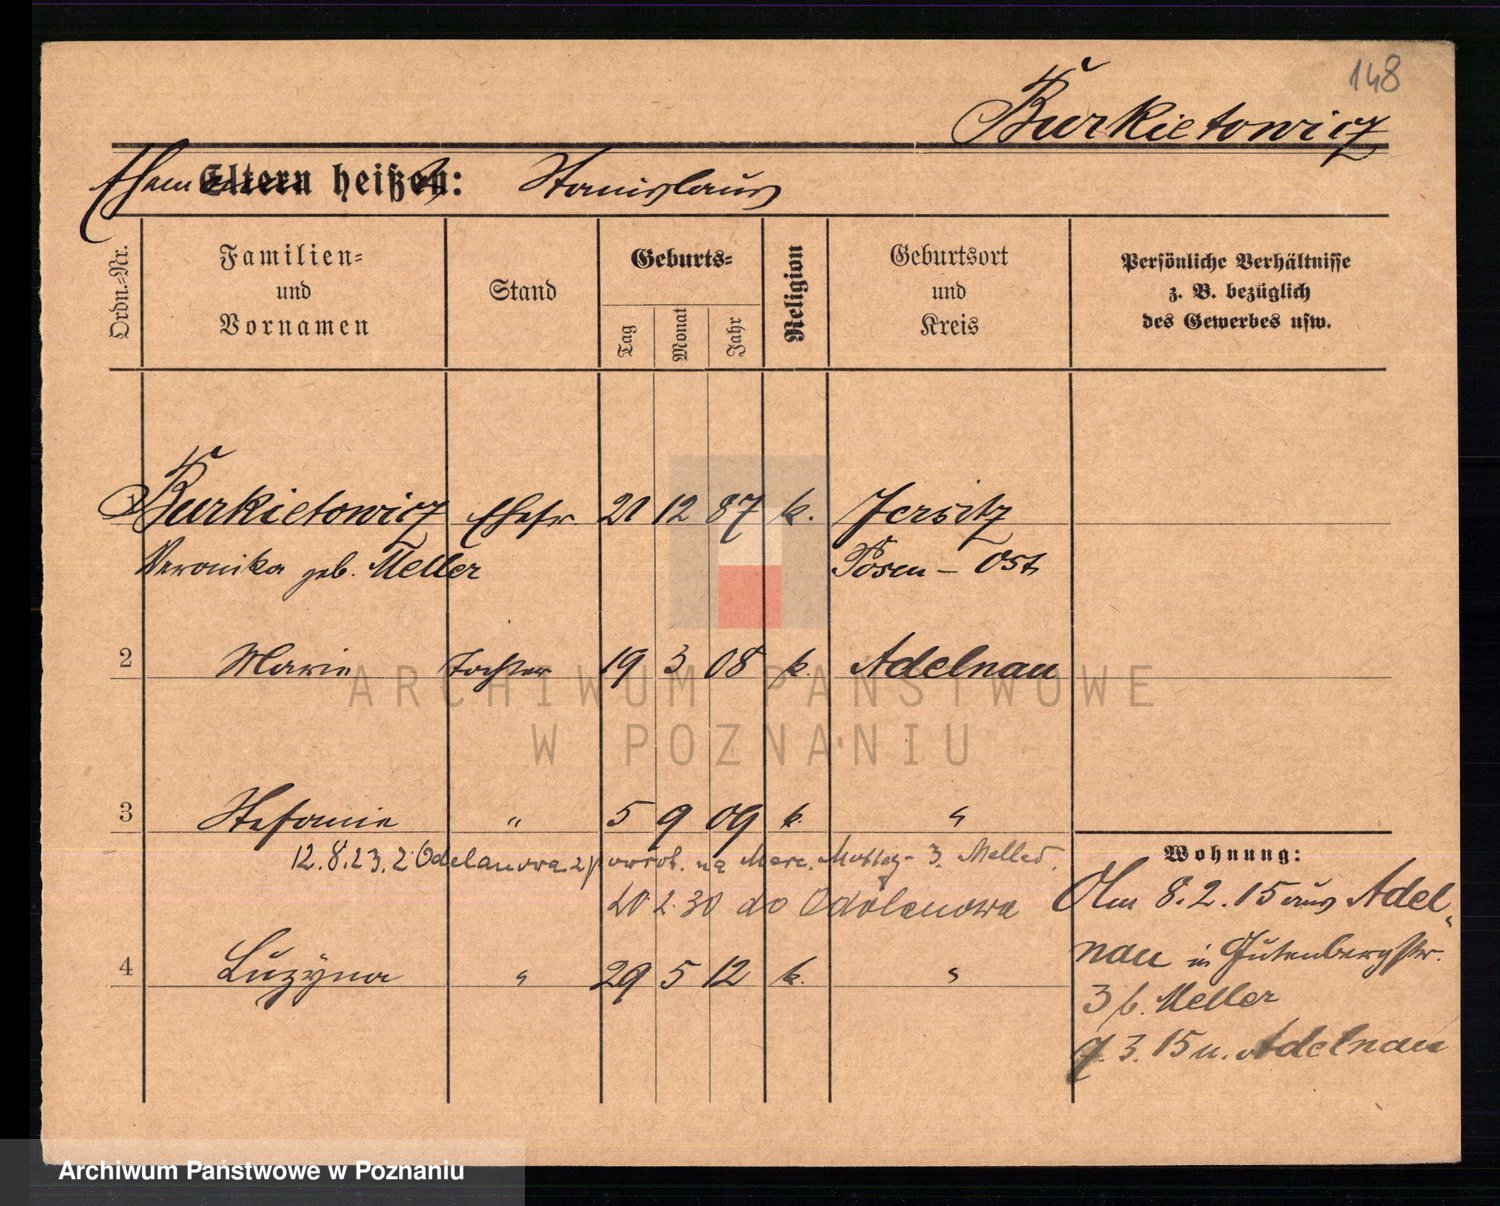 148
Burkietowicz
Ehem Eltern heißen: Stanislaus
Ordn.-Nr.
Familien-
und
Vornamen
Stand
Geburts-
Tag
Monat
Jahr
Religion
Geburtsort
und
Kreis
Persönliche Verhältnisse
z. B. bezüglich
des Gewerbes usw.
1 Burkietowicz Ehefr. 21 12 87 k. Jersitz
Veronika geb. Meller Posen – Ost
2 Marie Tochter 19 3 08 k. Adelnau
3 Stefanie " 5 9 09 k. "
12.8.23. z Odelanowa 3. Melled
20 2. 30 do Odolanowa
4 Luzÿna " 29 5 12 k. "
Wohnung:
Am 8.2.15 aus Adel-
nau in Gutenbergstr.
3 b. Meller
7. 3. 15 n. Adelnau
ARCHIWUM PAŃSTWOWE
W POZNANIU
Archiwum Państwowe w Poznaniu